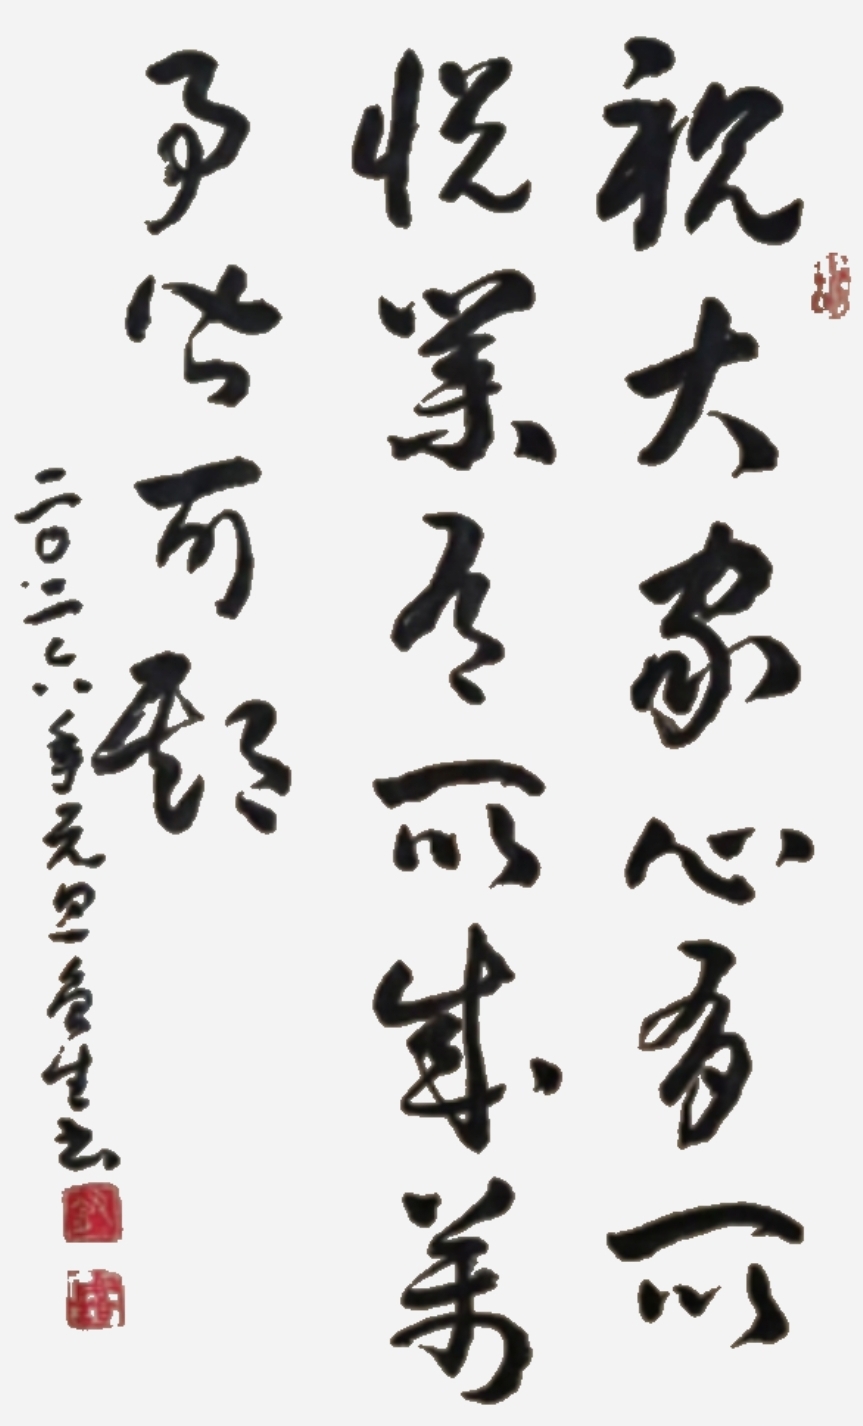 祝大家心有所
悦業有所成萬
事皆可期
二〇二六年元旦 生书